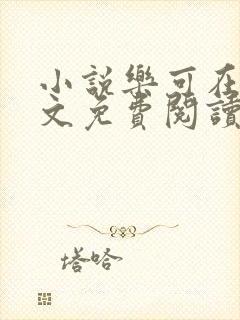 小說樂可在
文免費閱讀
塔哈